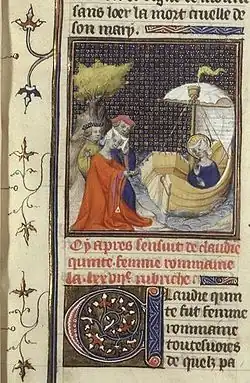 sans loer la mort cruelle de
son mary.
Cy apres sensuit de claudie
quinte femme rommaine
la lxxvne rubriche
Claudie quin
te fut femme
rommaine
toutesuoies
de quelz pa